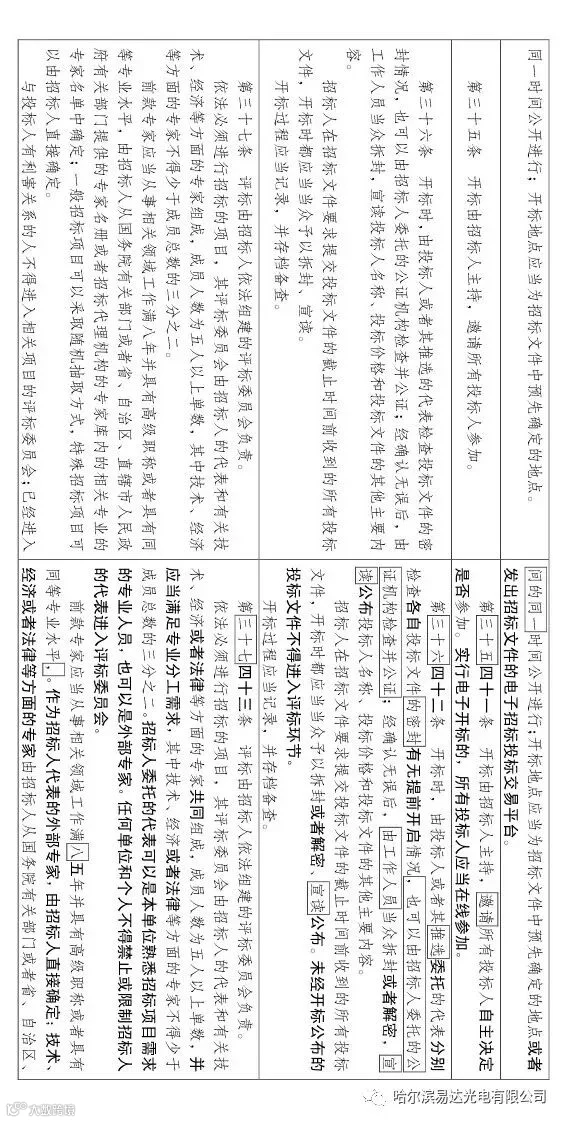 同一时间公开进行，开标地点应当为招标文件中预先确定的地点。
间的同一时间公开进行；开标地点应当为招标文件中预先确定的地点或者
发出招标文件的电子招标投标交易平台。
第三十五条 开标由招标人主持，邀请所有投标人参加。
第三十五四十一条 开标由招标人主持，邀请所有投标人自主决定
是否参加。实行电子开标的，所有投标人应当在线参加。
第三十六条 开标时，由投标人或者其推选的代表检查投标文件的密
封情况，也可以由招标人委托的公证机构检查并公证；经确认无误后，由
工作人员当众拆封，宣读投标人名称、投标价格和投标文件的其他主要内
容。
招标人在招标文件要求提交投标文件的截止时间前收到的所有投标
文件，开标时都应当当众予以拆封、宣读。
开标过程应当记录，并存档备查。
第三十六四十二条 开标时，由投标人或者其推选委托的代表分别
检查各自投标文件的密封有无提前开启情况，也可以由招标人委托的公
证机构检查并公证；经确认无误后，由工作人员当众拆封或者解密，宣
读公布投标人名称、投标价格和投标文件的其他主要内容。
招标人在招标文件要求提交投标文件的截止时间前收到的所有投标
文件，开标时都应当当众予以拆封或者解密、宣读公布。未经开标公布的
投标文件不得进入评标环节。
开标过程应当记录，并存档备查。
第三十七条 评标由招标人依法组建的评标委员会负责。
依法必须进行招标的项目，其评标委员会由招标人的代表和有关技
术、经济等方面的专家组成，成员人数为五人以上单数，其中技术、经济
等方面的专家不得少于成员总数的三分之二。
前款专家应当从事相关领域工作满八年并具有高级职称或者具有同
等专业水平，由招标人从国务院有关部门或者省、自治区、直辖市人民政
府有关部门提供的专家名册或者招标代理机构的专家库内的相关专业的
专家名单中确定；一般招标项目可以采取随机抽取方式，特殊招标项目可
以由招标人直接确定。
与投标人有利害关系的人不得进入相关项目的评标委员会；已经进入
第三十七四十三条 评标由招标人依法组建的评标委员会负责。
依法必须进行招标的项目，其评标委员会由招标人的代表和有关技
术、经济或者法律等方面的专家共同组成，成员人数为五人以上单数，并
应当满足专业分工需求，其中技术、经济或者法律等方面的专家不得少于
成员总数的三分之二。招标人委托的代表可以是本单位熟悉招标项目需求
的专业人员，也可以是外部专家。任何单位和个人不得禁止或限制招标人
的代表进入评标委员会。
前款专家应当从事相关领域工作满八五年并具有高级职称或者具有
同等专业水平，。作为招标人代表的外部专家，由招标人直接确定；技术、
经济或者法律等方面的专家由招标人从国务院有关部门或者省、自治区、
哈尔滨易达光电有限公司
大业跨境